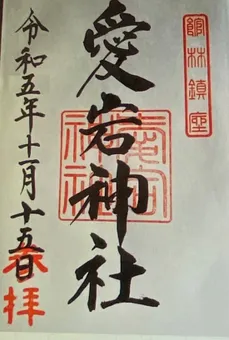 館林鎮座
愛宕神社
愛宕神社
令和五年十一月十五日
奉拝